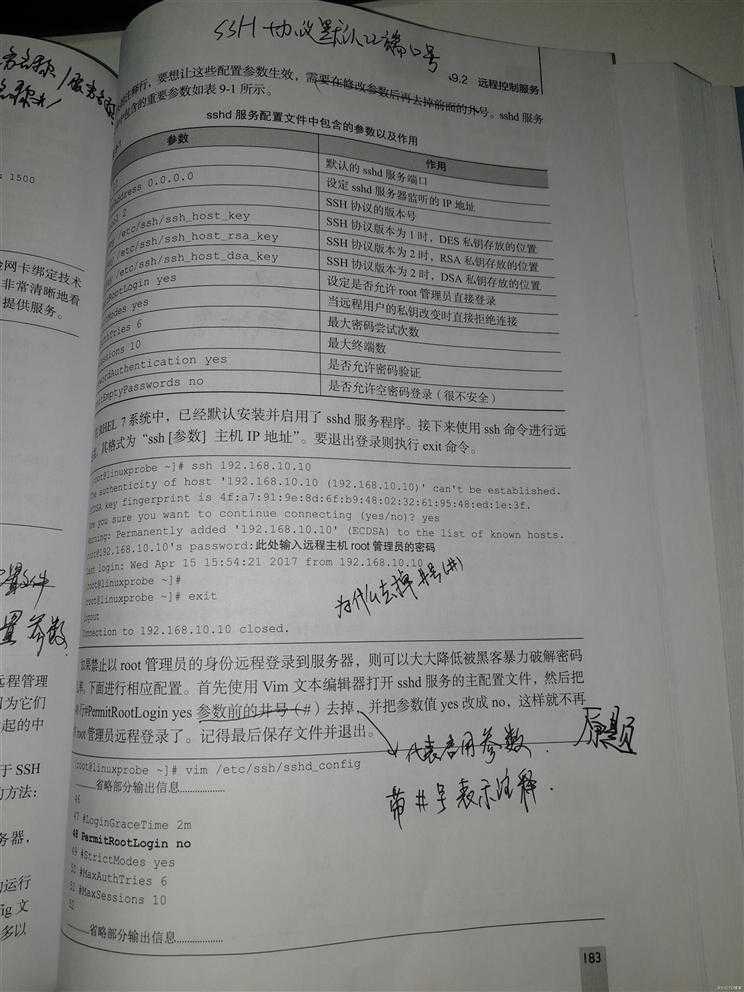 SSH 协议默认22端口号
9.2 远程控制服务
行，要想让这些配置参数生效，需要在修改参数后再去掉前面的井号。sshd 服务
包含的重要参数如表 9-1 所示。
sshd 服务配置文件中包含的参数以及作用
参数 作用
默认的 sshd 服务端口
address 0.0.0.0 设定 sshd 服务器监听的 IP 地址
2 SSH 协议的版本号
/etc/ssh/ssh_host_key SSH 协议版本为 1 时，DES 私钥存放的位置
/etc/ssh/ssh_host_rsa_key SSH 协议版本为 2 时，RSA 私钥存放的位置
/etc/ssh/ssh_host_dsa_key SSH 协议版本为 2 时，DSA 私钥存放的位置
RootLogin yes 设定是否允许 root 管理员直接登录
Modes yes 当远程用户的私钥改变时直接拒绝连接
Tries 6 最大密码尝试次数
essions 10 最大终端数
wordAuthentication yes 是否允许密码验证
itEmptyPasswords no 是否允许空密码登录（很不安全）
RHEL 7 系统中，已经默认安装并启用了 sshd 服务程序。接下来使用 ssh 命令进行远
其格式为“ssh [参数] 主机 IP 地址”。要退出登录则执行 exit 命令。
root@linuxprobe ~]# ssh 192.168.10.10
authenticity of host '192.168.10.10 (192.168.10.10)' can't be established.
key fingerprint is 4f:a7:91:9e:8d:6f:b9:48:02:32:61:95:48:ed:1e:3f.
you sure you want to continue connecting (yes/no)? yes
Permanently added '192.168.10.10' (ECDSA) to the list of known hosts.
root@192.168.10.10's password:此处输入远程主机 root 管理员的密码
last login: Wed Apr 15 15:54:21 2017 from 192.168.10.10
root@linuxprobe ~]#
root@linuxprobe ~]# exit
logout
Connection to 192.168.10.10 closed.
为什么去掉井号(#)
如果禁止以 root 管理员的身份远程登录到服务器，则可以大大降低被黑客暴力破解密码
下面进行相应配置。首先使用 Vim 文本编辑器打开 sshd 服务的主配置文件，然后把
行#PermitRootLogin yes 参数前的井号（#）去掉，并把参数值 yes 改成 no，这样就不再
root 管理员远程登录了。记得最后保存文件并退出。
root@linuxprobe ~]# vim /etc/ssh/sshd_config
………省略部分输出信息………
46
47 #LoginGraceTime 2m
48 PermitRootLogin no
49 #StrictModes yes
50 #MaxAuthTries 6
51 #MaxSessions 10
52
………省略部分输出信息………
代表启用参数.
带#号表示注释.
183
1500
网卡绑定技术
非常清晰地看
提供服务。
配置文件
置参数
远程管理
因为它们
起的中
于 SSH
的方法：
务器，
的运行
ig 文
多以